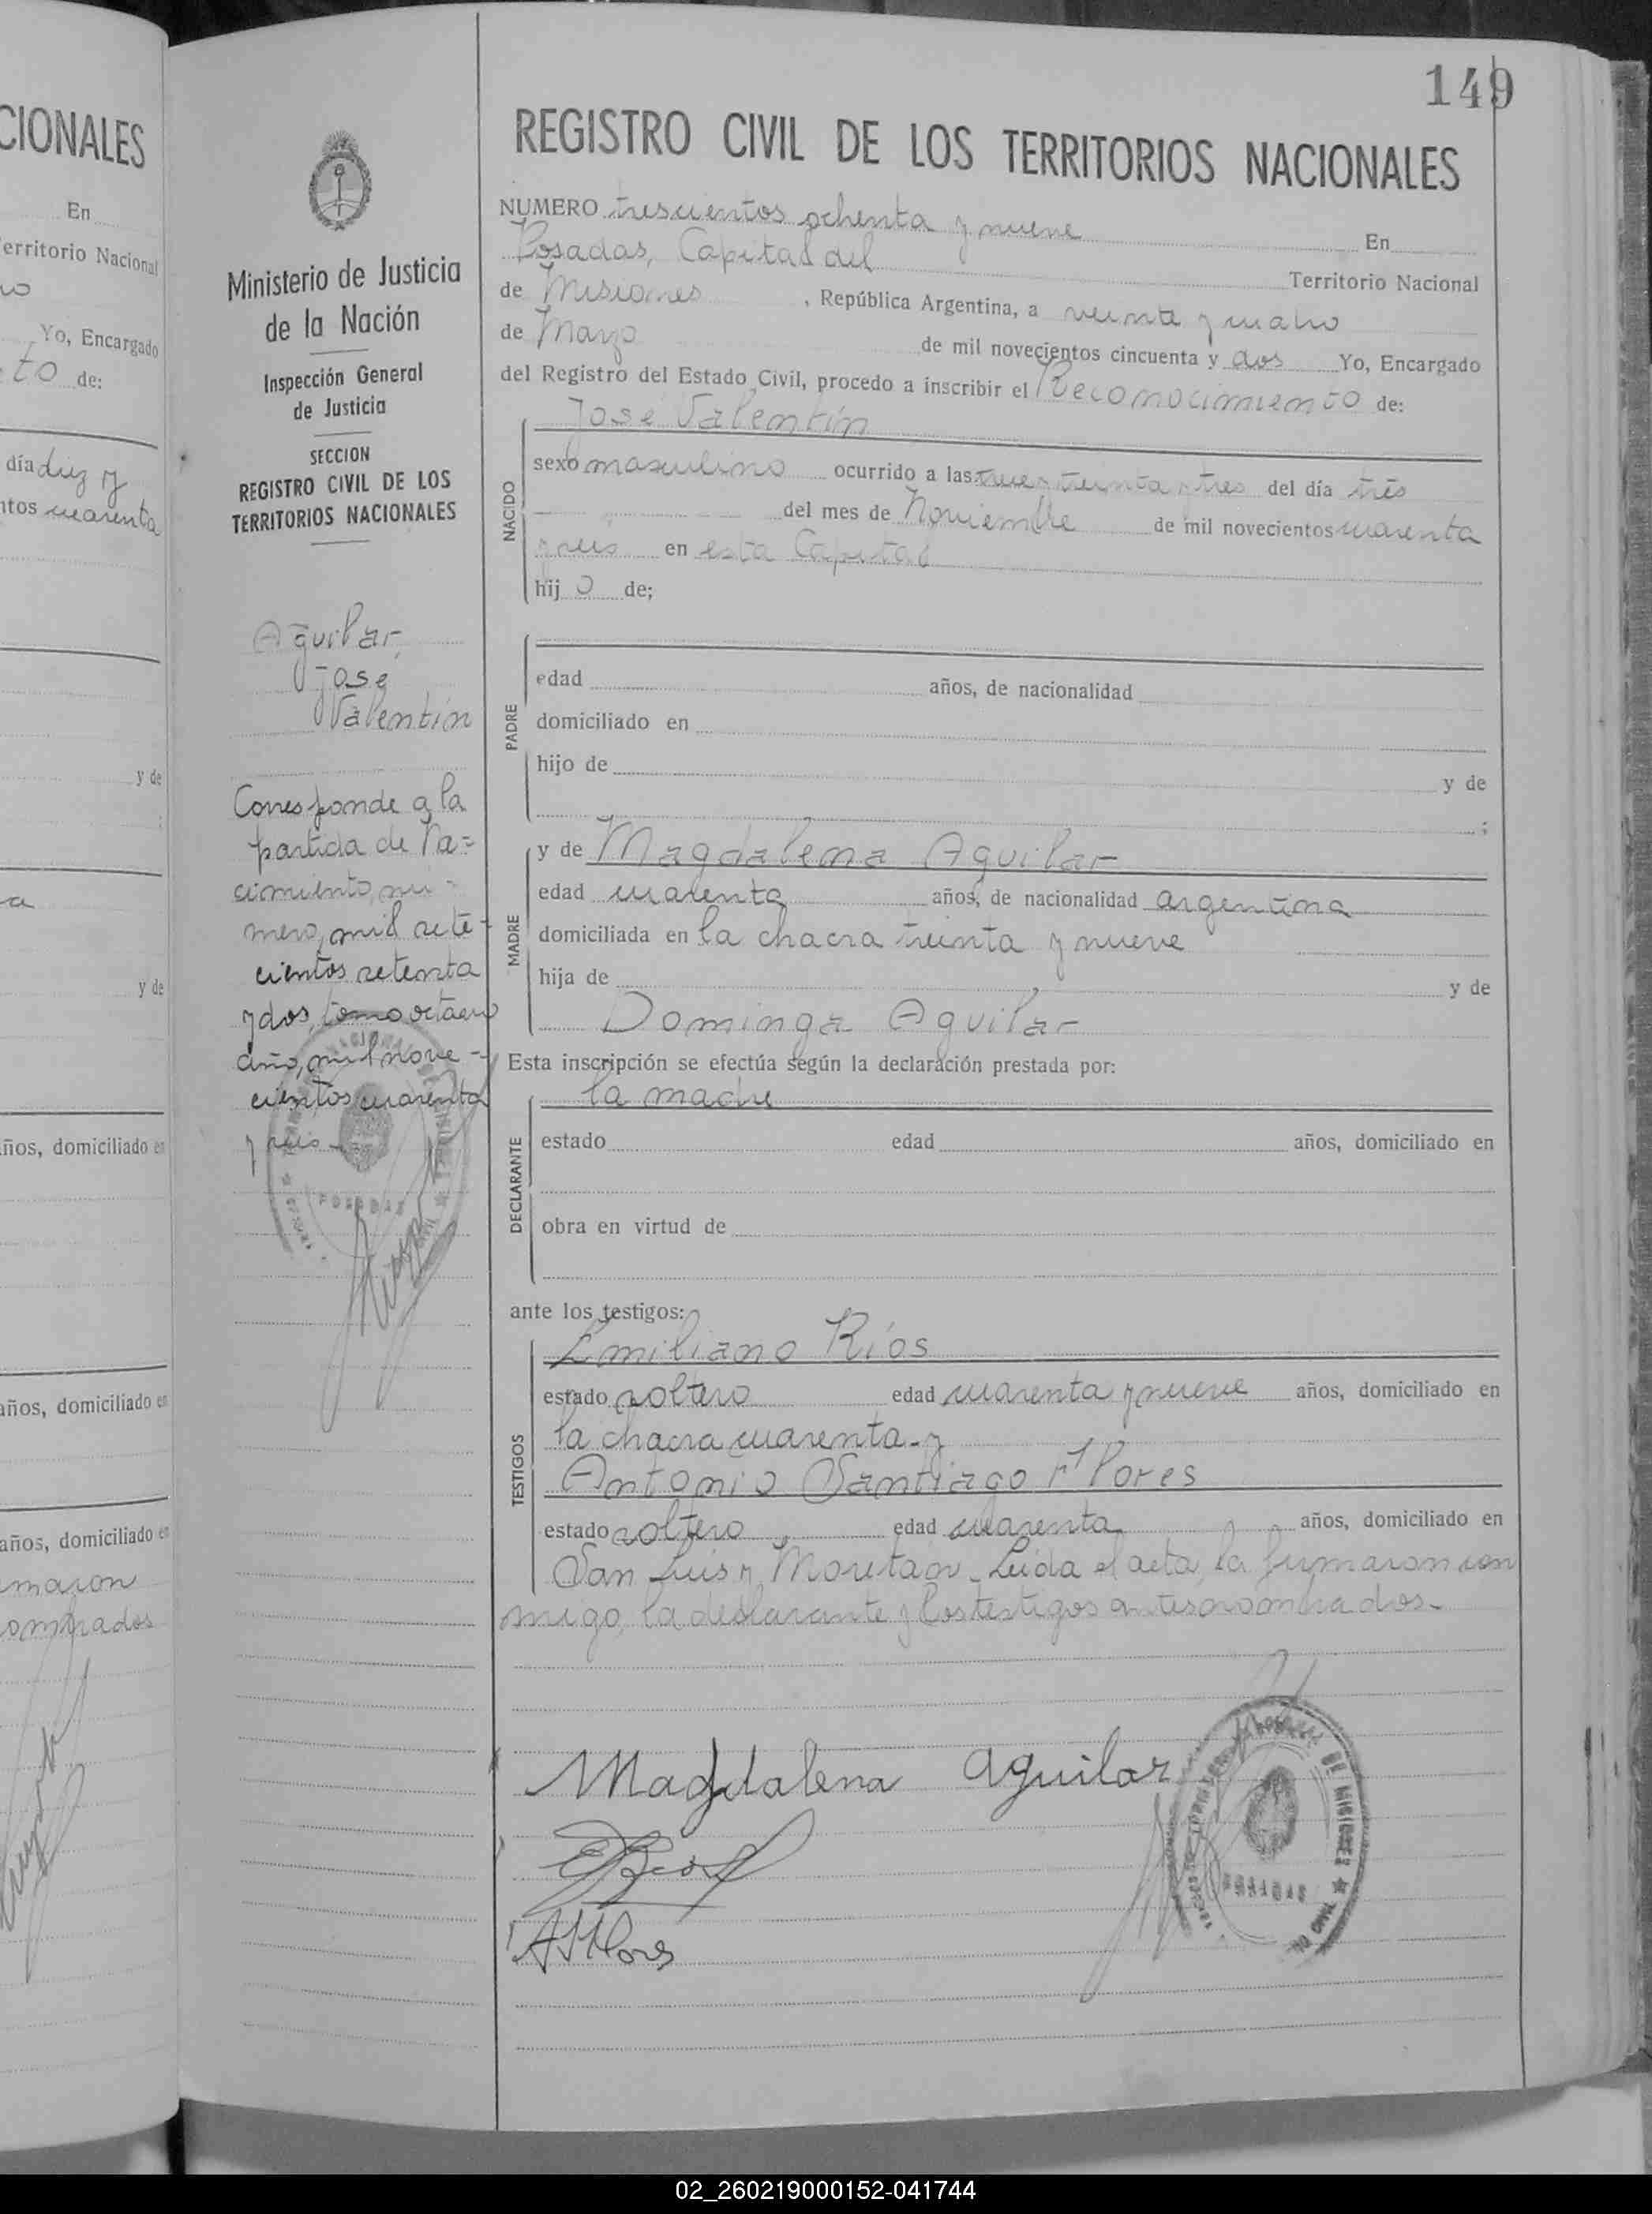 CIONALES
En
erritorio Nacional
Yo, Encargado
to de:
día diez y
ntos cuarenta
y de
y de
años, domiciliado en
años, domiciliado en
años, domiciliado en
maron
ombrados
149
Ministerio de Justicia
de la Nación
Inspección General
de Justicia
SECCION
REGISTRO CIVIL DE LOS
TERRITORIOS NACIONALES
Aguilar,
José
Valentín
Corresponde a la
partida de Na=
cimiento, nú-
mero, mil sete-
cientos setenta
y dos, tomo octavo
año, mil nove-
cientos cuarenta
y seis-
POSADAS
REGISTRO CIVIL DE LOS TERRITORIOS NACIONALES
NUMERO trescientos ochenta y nueve En
Posadas, Capital del Territorio Nacional
de Misiones, República Argentina, a veinte y cuatro
de Marzo de mil novecientos cincuenta y dos Yo, Encargado
del Registro del Estado Civil, procedo a inscribir el Reconocimiento de:
José Valentín
NACIDO
sexo masculino ocurrido a las trece y treinta y tres del día tres
del mes de Noviembre de mil novecientos cuarenta
y seis en esta Capital
hij o de;
PADRE
edad años, de nacionalidad
domiciliado en
hijo de y de
;
MADRE
y de Magdalena Aguilar
edad cuarenta años, de nacionalidad argentina
domiciliada en la chacra treinta y nueve
hija de y de
Dominga Aguilar
Esta inscripción se efectúa según la declaración prestada por:
la madre
DECLARANTE
estado edad años, domiciliado en
obra en virtud de
ante los testigos:
Emiliano Ríos
TESTIGOS
estado soltero edad cuarenta y nueve años, domiciliado en
la chacra cuarenta-y
Antonio Santiago Flores
estado soltero edad cuarenta años, domiciliado en
San Luis y Moritán- Leída el acta, la firmaron con
migo, la declarante y los testigos antes nombrados-
Magdalena Aguilar
ASFlores
DE MISIONES
POSADAS
02_260219000152-041744